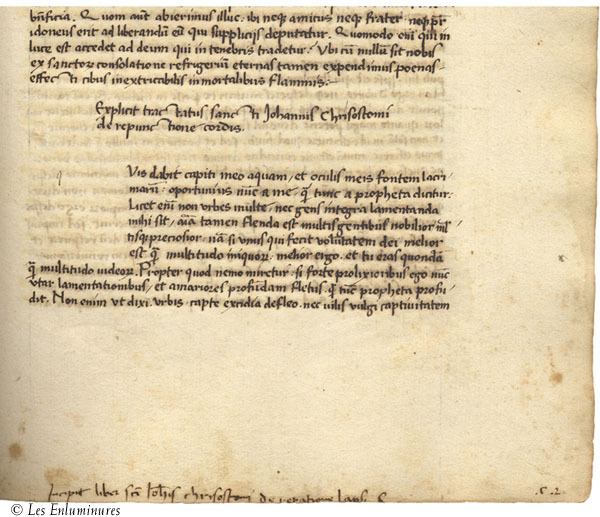 bñficia. Quom aut abierimus illuc. ibi neq amicus neq frater neq pr̄
idoneus erit ad liberandū eū qui supplicijs deputatur. Quomodo em̄ qui in
luce est accedet ad deum qui in tenebris tradetur. Ubi cū nullū sit nobis
ex sanctor consolatione refrigeriū eternas tamen expendimus poenas
effecti cibus inextricabilis inmortalibus flammis:
Explicit tractatus sancti Johannis Chrisostomi
de repunctione cordis.
Vis dabit capiti meo aquam, et oculis meis fontem lacri
marū. oportunius nūc a me, q̄ tunc a propheta dicitur.
Licet em̄ non urbes multe, nec gens integra lamentanda
mihi sit, aīa tamen flenda est multis gentibus nobilior
tisq preciosior. nā si unus qui fecit volūtatem dei melior
est q̄ multitudo iniquor. melior ergo, et tu eras quondā
q̄ multitudo iudeor. Propter quod nemo miretur, si forte prolixioribus ego nūc
utar lamentationibus, et amariores profūdam fletus, q̄ tūc propheta profu
dit. Non enim ut dixi urbis capte excidia defleo, nec uilis vulgi captiuitatem
Incipit liber scī Iohis chrisostomi de reparatione lapsi
.c.2.
© Les Enluminures